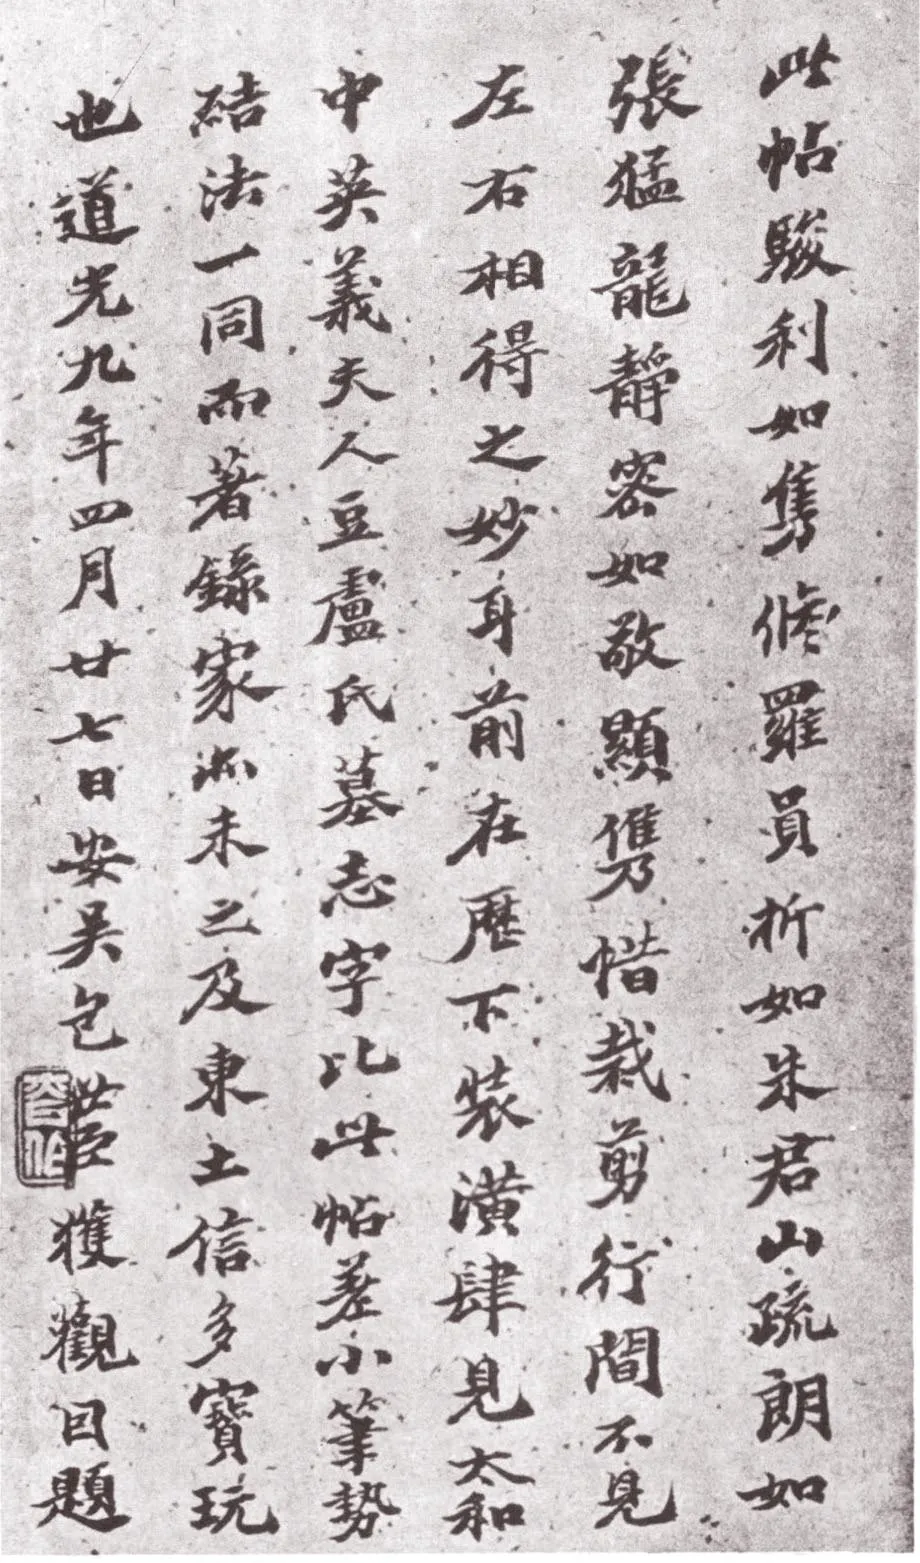 此帖駿利如隽脩羅員折如朱君山疏朗如
張猛龍靜密如敬顯儁惜裁剪行間不見
左右相得之妙耳前在歷下裝潢肆見太和
中英義夫人豆盧氏墓志字比此帖差小筆勢
結法一同而著錄家亦未之及東土信多寶玩
也道光九年四月廿七日安吳包世臣獲觀因題